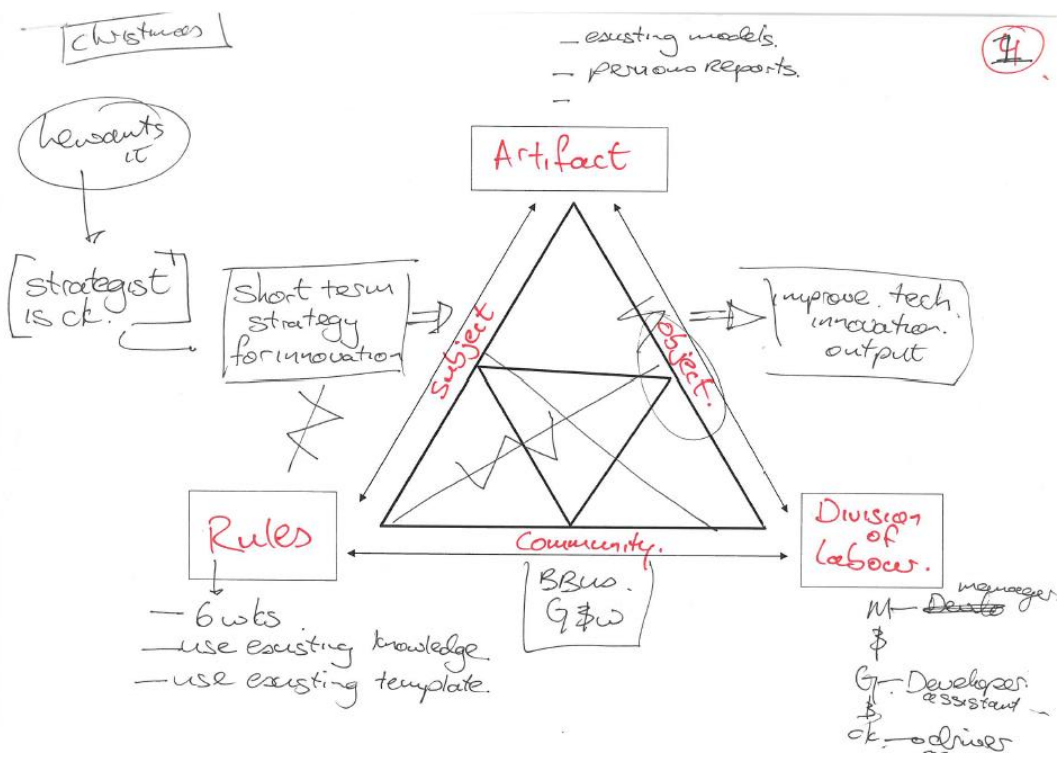 christmas
- existing models.
- previous reports.
-
he wants
it
Artifact
strategist
is ck.
short term
strategy
for innovation
subject
object.
improve tech.
innovation.
output
Rules
Community.
Division
of
labour.
BBus.
- 6 wks.
- use existing knowledge
- use existing template.
manager
M-
G- Developer.
assistant
B
ck. - driver